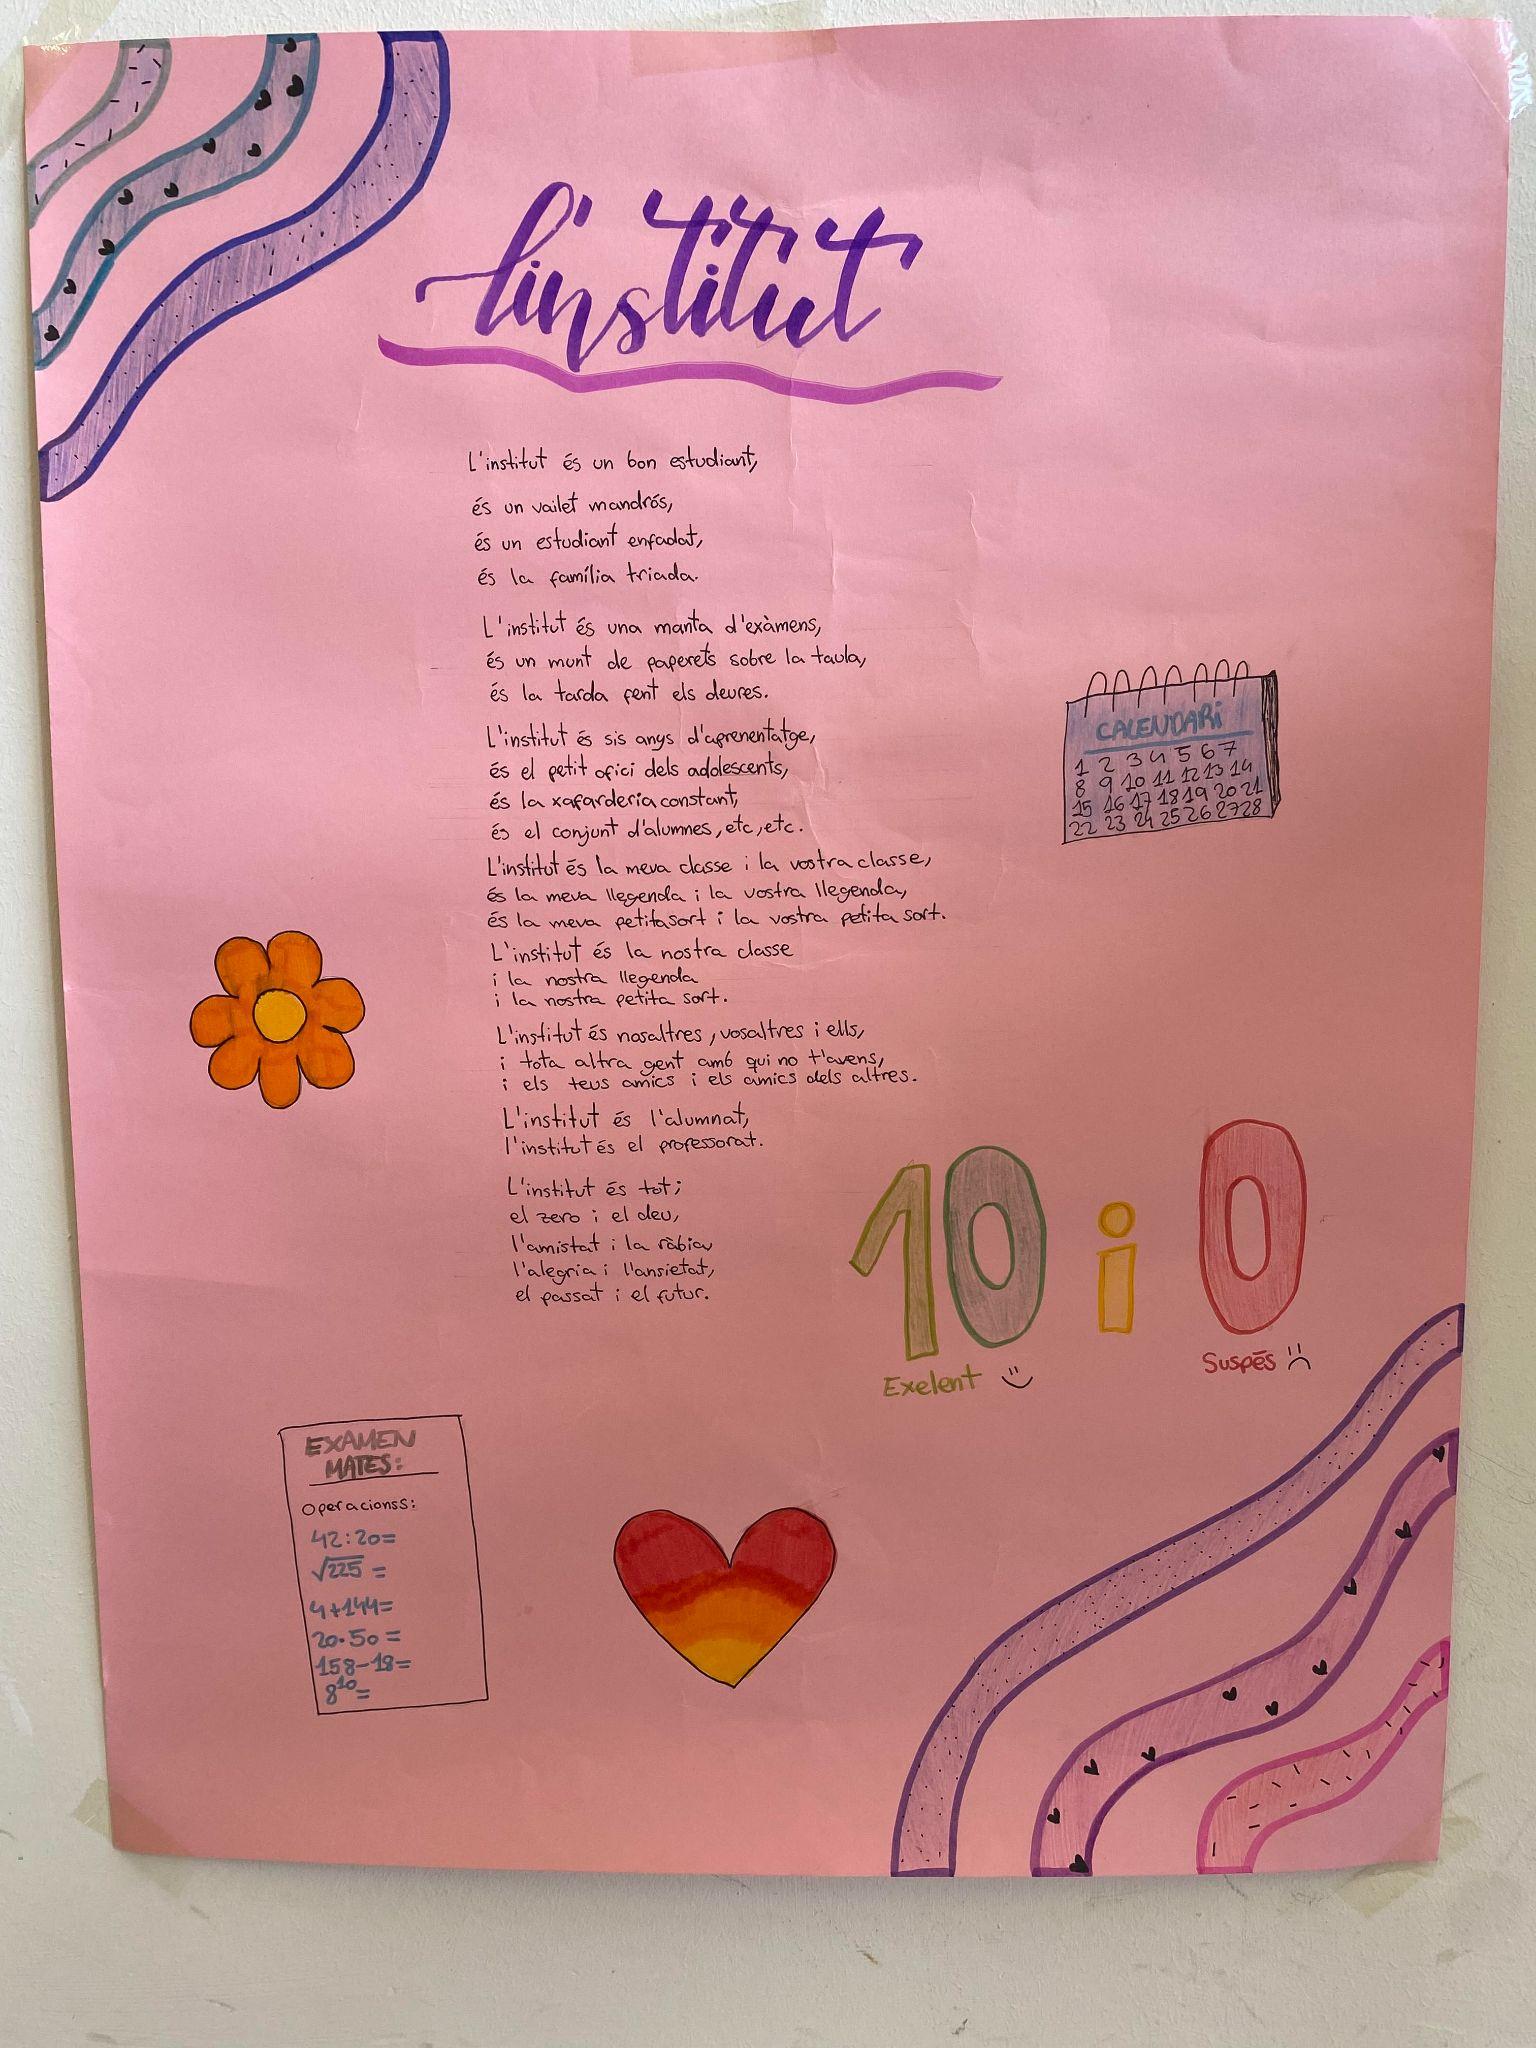 L'institut
L'institut és un bon estudiant,
és un vailet mandrós,
és un estudiant enfadat,
és la família triada.
L'institut és una manta d'exàmens,
és un munt de paperets sobre la taula,
és la tarda fent els deures.
L'institut és sis anys d'aprenentatge,
és el petit ofici dels adolescents,
és la xafarderia constant,
és el conjunt d'alumnes, etc, etc.
L'institut és la meva classe i la vostra classe,
és la meva llegenda i la vostra llegenda,
és la meva petita sort i la vostra petita sort.
L'institut és la nostra classe
i la nostra llegenda
i la nostra petita sort.
L'institut és nosaltres, vosaltres i ells,
i tota altra gent amb qui no t'avens,
i els teus amics i els amics dels altres.
L'institut és l'alumnat,
l'institut és el professorat.
L'institut és tot;
el zero i el deu,
l'amistat i la ràbia,
l'alegria i l'ansietat,
el passat i el futur.
CALENDARi
1 2 3 4 5 6 7
8 9 10 11 12 13 14
15 16 17 18 19 20 21
22 23 24 25 26 27 28
10 i 0
Exelent
Suspés
EXAMEN
MATES:
Operacionss:
42:20=
√225 =
4+144=
20·50=
158-18=
8¹⁰=